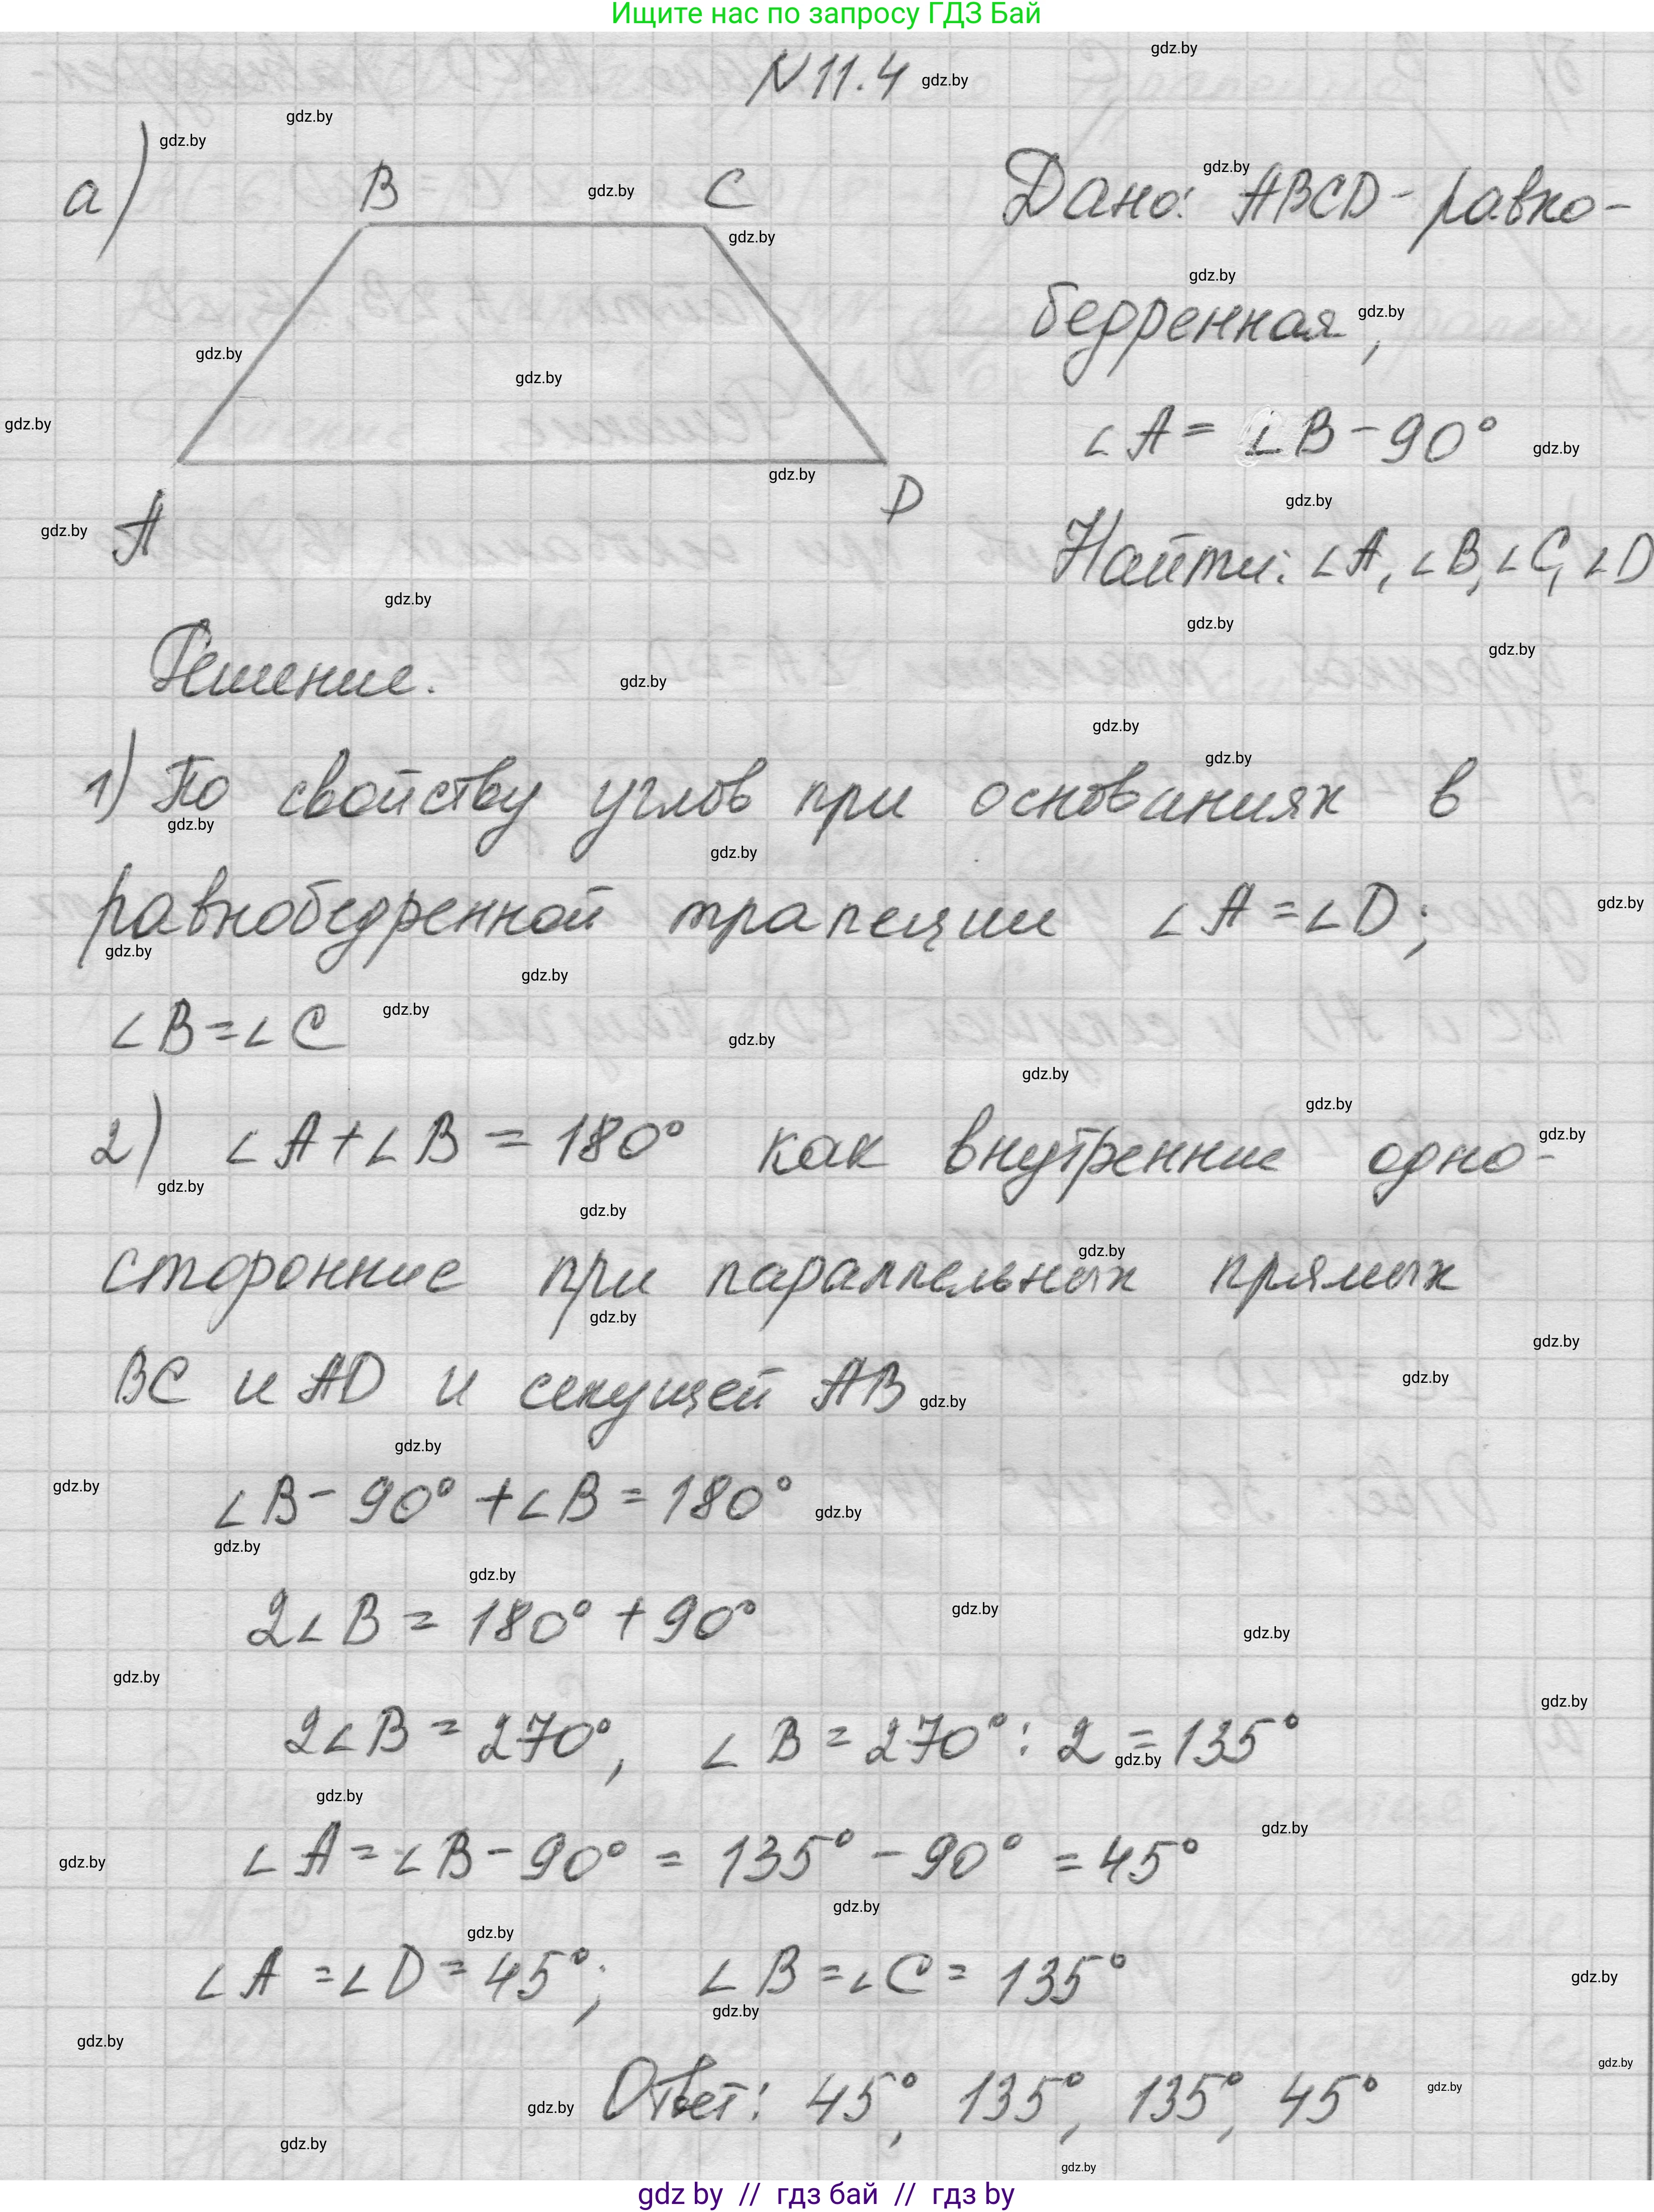 Ищите нас по запросу ГДЗ Бай
N 11.4
а)
B C
A D
Дано: ABCD - равно-
бедренная,
∠A = ∠B - 90°
Найти: ∠A, ∠B, ∠C, ∠D
Решение.
1) По свойству углов при основаниях в
равнобедренной трапеции ∠A = ∠D;
∠B = ∠C
2) ∠A + ∠B = 180° как внутренние одно-
сторонние при параллельных прямых
BC и AD и секущей AB
∠B - 90° + ∠B = 180°
2∠B = 180° + 90°
2∠B = 270°, ∠B = 270° : 2 = 135°
∠A = ∠B - 90° = 135° - 90° = 45°
∠A = ∠D = 45°; ∠B = ∠C = 135°
Ответ: 45°, 135°, 135°, 45°
gdz by // гдз бай // гдз by